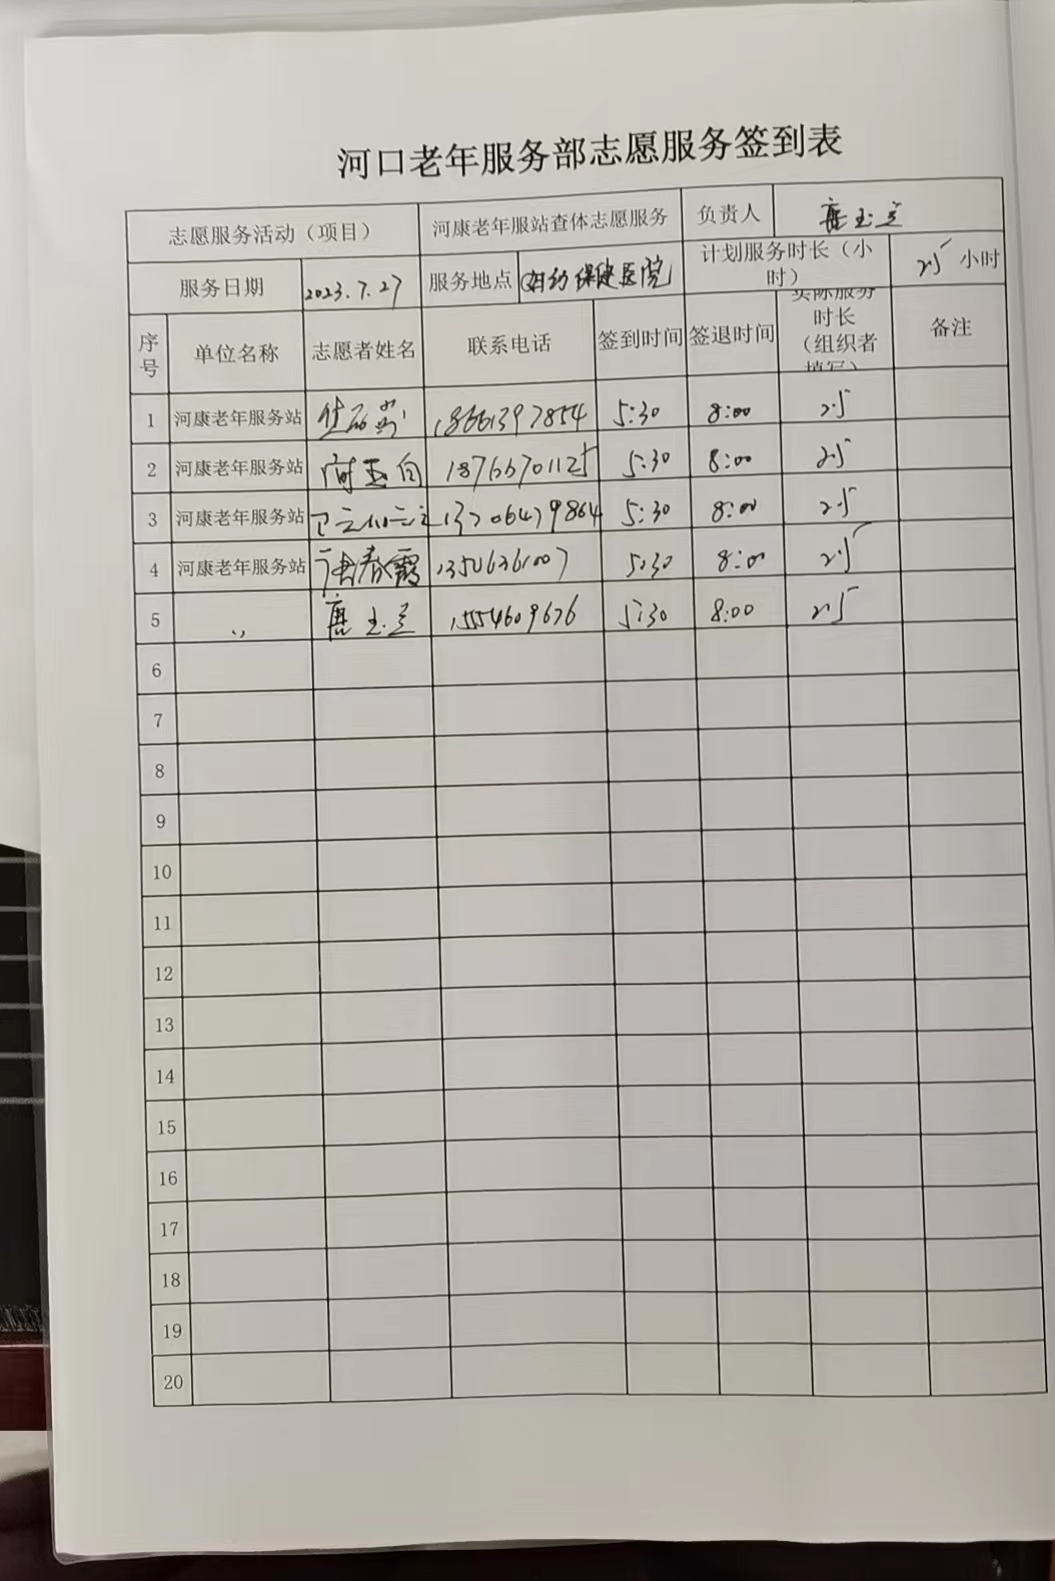 河口老年服务部志愿服务签到表
志愿服务活动（项目） 河康老年服站查体志愿服务 负责人 唐玉兰
服务日期 2023.7.27 服务地点 妇幼保健医院 计划服务时长（小时） 2.5 小时
序号 单位名称 志愿者姓名 联系电话 签到时间 签退时间 实际服务时长（组织者填写） 备注
1 河康老年服务站 18661397854 5:30 8:00 2.5
2 河康老年服务站 18766701125 5:30 8:00 2.5
3 河康老年服务站 13706479864 5:30 8:00 2.5
4 河康老年服务站 唐春霞 5:30 8:00 2.5
5 〃 唐玉兰 5:30 8:00 2.5
6
7
8
9
10
11
12
13
14
15
16
17
18
19
20